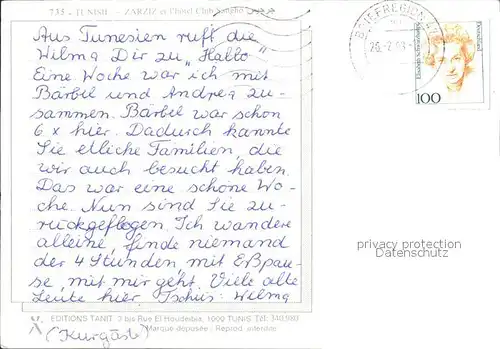 733 - TUNISIE - ZARZIS et l'hôtel Club Sangho
Aus Tunesien ruft die
Wilma Dir zu „Hallo"
Eine Woche war ich mit
Bärbel und Andrea zu-
sammen. Bärbel war schon
6 x hier. Dadurch kannte
Sie etliche Familien, die
wir auch besucht haben.
Das war eine schöne Wo-
che. Nun sind Sie zu-
rückgeflogen. Ich wandere
alleine, finde niemand
der 4 Stunden, mit Eßpau-
se, mit mir geht. Viele alte
Leute hier. Tschüs: Wilma
(Kurgäste)
EDITIONS TANIT 2 bis Rue El Houdeibia, 1000 TUNIS Tél: 340.989
Marque déposée / Reprod. interdite
BRIEFREGION
Elisabeth Schwarzhaupt
Deutschland
100
privacy protection
Datenschutz